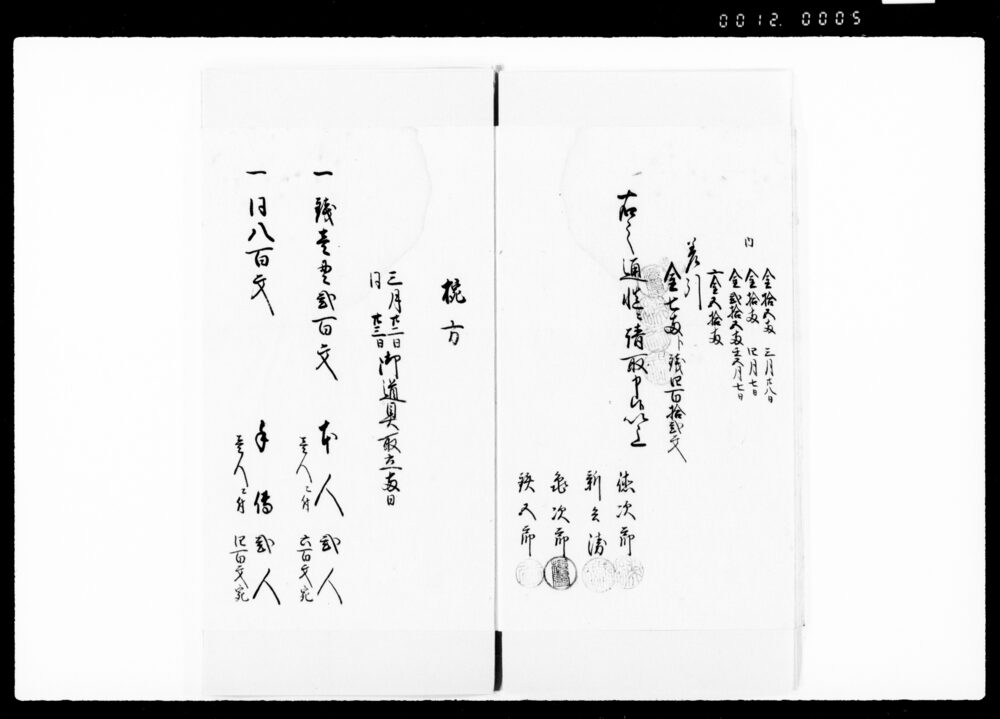 0012. 0005
内
金拾五両 三月廿八日
金拾両 四月七日
金弐拾五両 五月七日
〆金五拾両
差引
金七両ト銭四百拾弐文
右之通慥ニ請取申候以上
徳次郎
新兵衛
亀次郎
鉄五郎
椀方
三月廿二日
同廿三日
御道具取立両日
一 銭壱貫弐百文 本人弐人
壱人ニ付 六百文宛
一 同八百文 手伝弐人
壱人ニ付 四百文宛